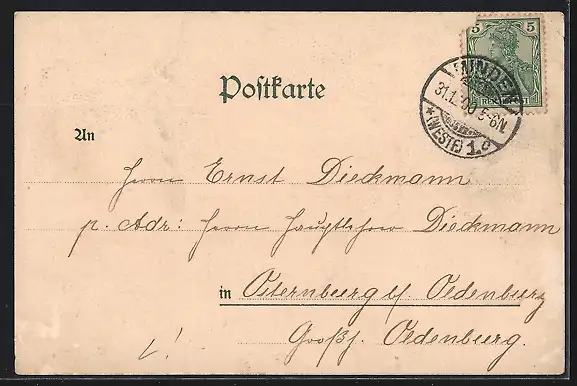 5 5
REICHSPOST
MINDEN
31.12.00 5-6N.
* (WESTF.) 1. c
Postkarte
An
Herrn Ernst Dieckmann
p. Adr: Herrn Hauptlehrer Dieckmann
in Osternburg b/ Oldenburg
Großh. Oldenburg.